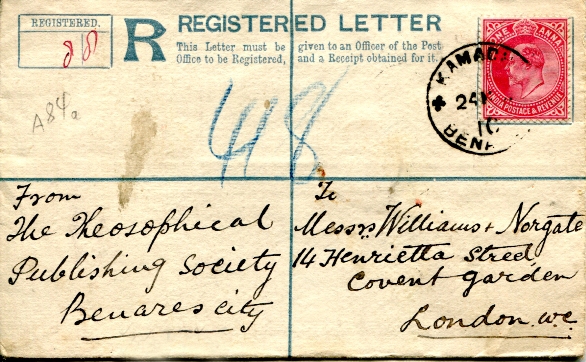 REGISTERED.
R
REGISTERED LETTER
This Letter must be given to an Officer of the Post
Office to be Registered, and a Receipt obtained for it.
ONE ANNA
INDIA POSTAGE & REVENUE
KAMAC
24
10
BEN
A84a
418
From
The Theosophical
Publishing Society
Benares city
To
Messrs Williams & Norgate
14 Henrietta Street
Covent Garden
London. W.C.